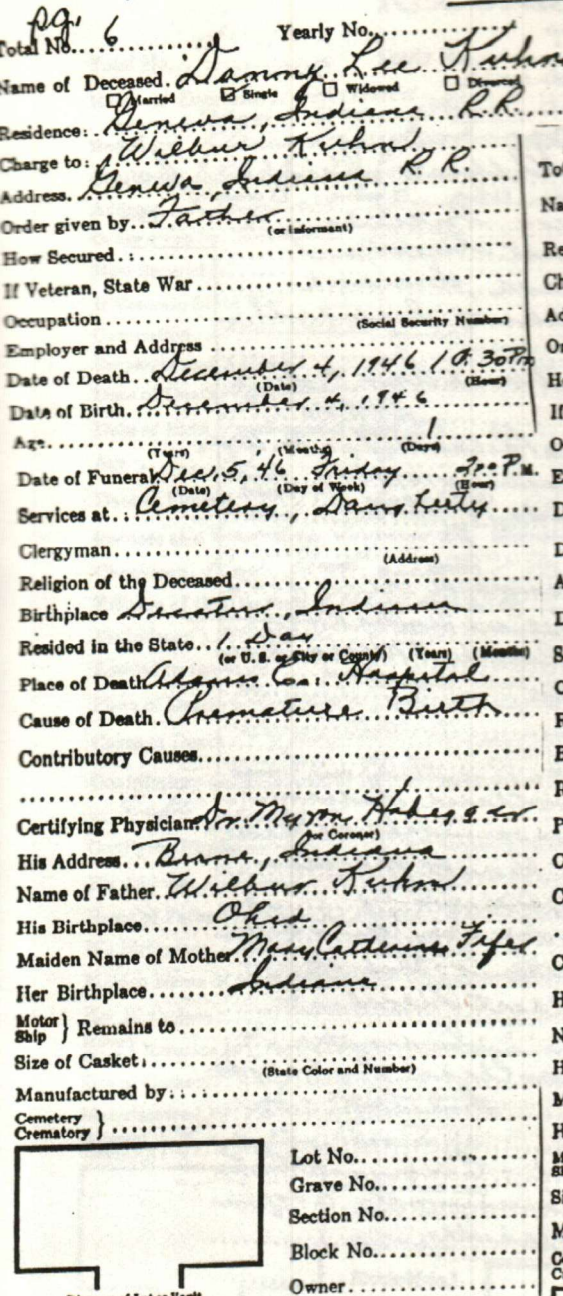 pg. 6
Total No. Yearly No.
Name of Deceased. Danny Lee Kuhn
Married Single Widowed Divorced
Residence: Geneva, Indiana R.R.
Charge to: Wilbur Kuhn
Address. Geneva, Indiana R.R.
Order given by. Father
(or informant)
How Secured
If Veteran, State War
Occupation (Social Security Number)
Employer and Address
Date of Death. December 4, 1946 10:30 Pm
(Date) (Hour)
Date of Birth. December 4, 1946
Age 1
(Years) (Months) (Days)
Date of Funeral Dec. 5, 46 Friday 2:00 P.M.
(Date) (Day of Week) (Hour)
Services at: Cemetery,
Clergyman (Address)
Religion of the Deceased
Birthplace Decatur, Indiana
Resided in the State. 1 Day
(or U. S. or City or County) (Years) (Months)
Place of Death Adams Co. Hospital
Cause of Death. Premature Birth
Contributory Causes
Certifying Physician Dr. Myron Habegger
(or Coroner)
His Address. Berne, Indiana
Name of Father. Wilbur Kuhn
His Birthplace. Ohio
Maiden Name of Mother. Mary Catherine Fifer
Her Birthplace. Indiana
Motor
Ship } Remains to
Size of Casket
(State Color and Number)
Manufactured by:
Cemetery
Crematory }
Lot No.
Grave No.
Section No.
Block No.
Owner